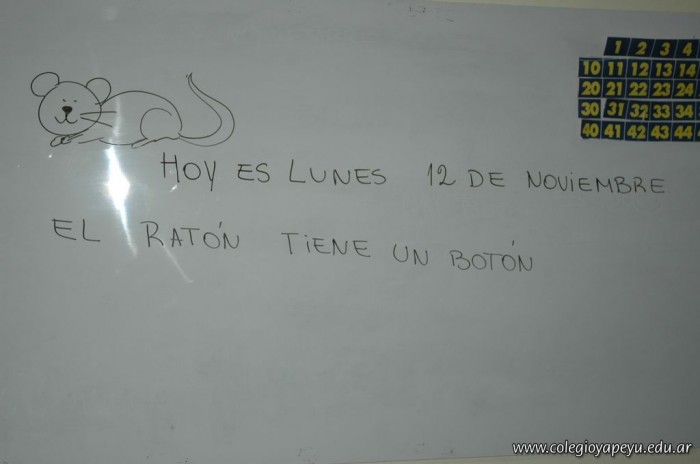 1 2 3 4
10 11 12 13 14
20 21 22 23 24
30 31 32 33 34
40 41 42 43 44
HOY ES LUNES 12 DE NOVIEMBRE
EL RATÓN TIENE UN BOTÓN
www.colegioyapeyu.edu.ar